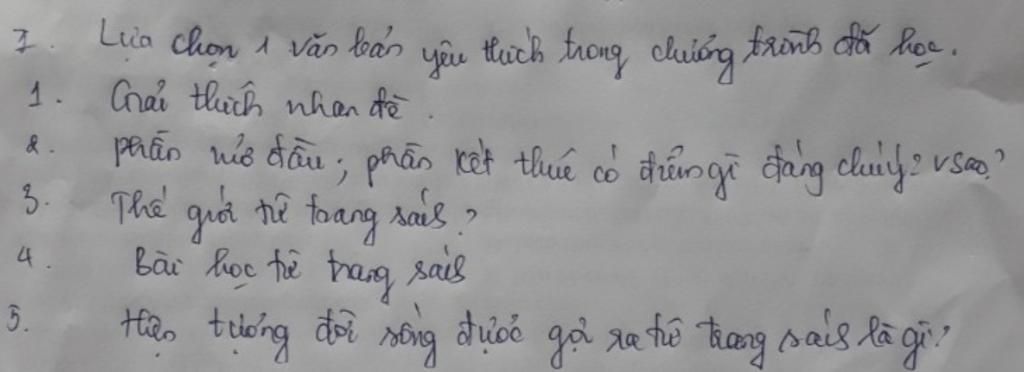 I. Lựa chọn 1 văn bản yêu thích trong chương trình đã học.
1. Giải thích nhan đề.
2. phần mở đầu; phần kết thúc có điểm gì đáng chú ý? vsao?
3. Thế giới từ trang sách?
4. Bài học từ trang sách
5. Hiện tượng đời sống được gợi ra từ trang sách là gì?